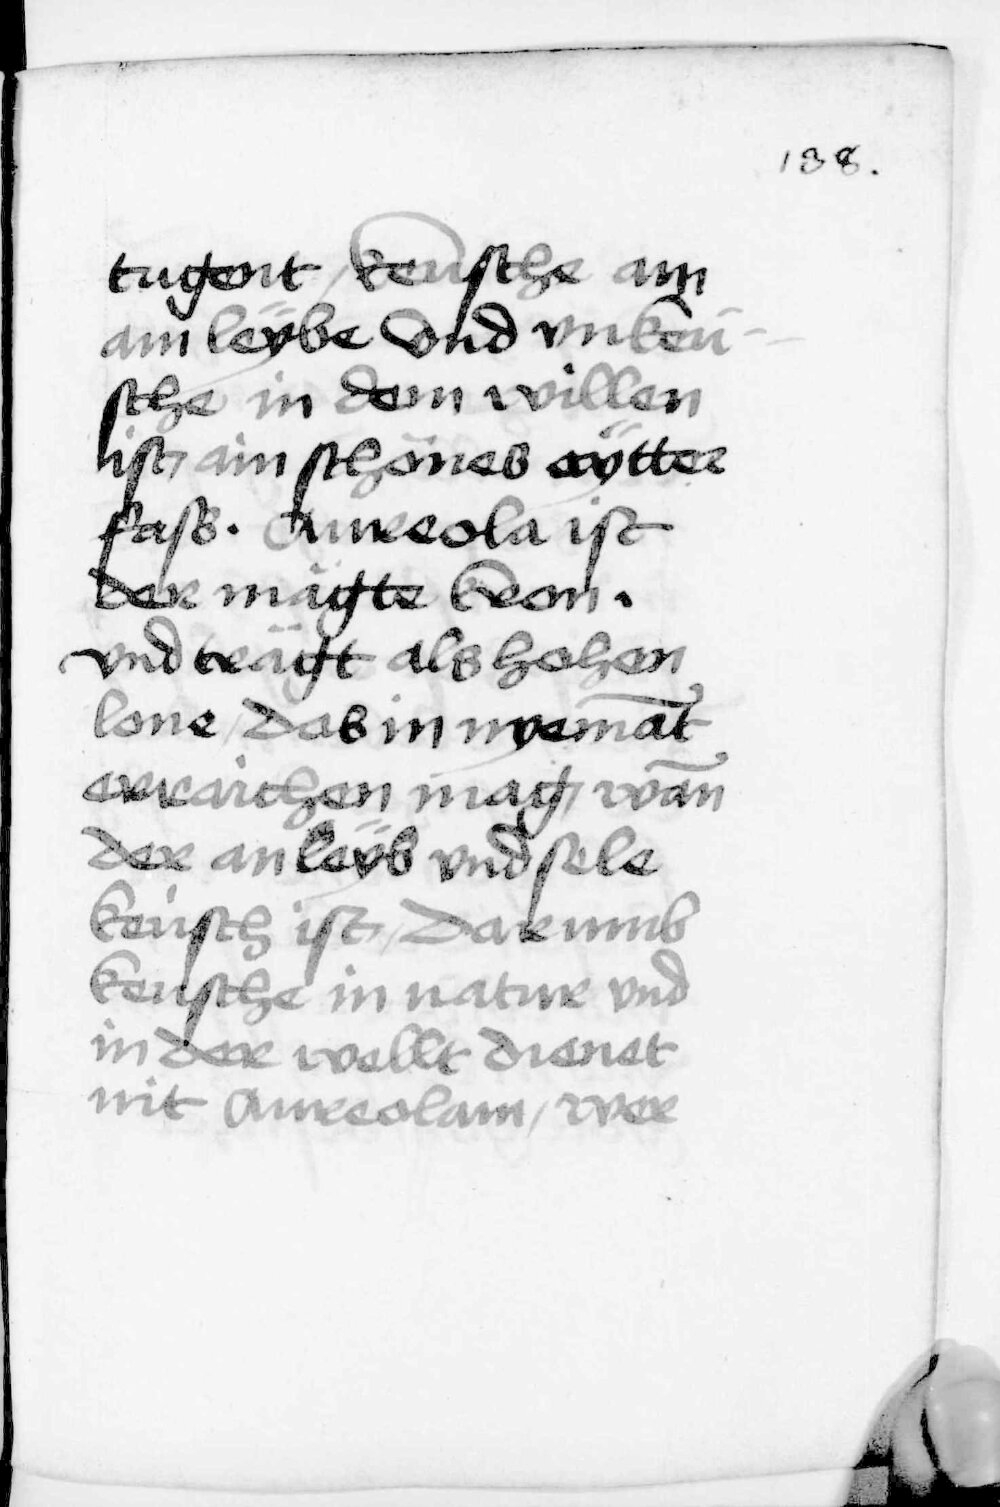 138.
tugent / keusche am
am leÿbe Vnd vnkeü-
sche in dem willen
ist, ain schönes eÿtter
fass. Aureola ist
der mägte kron.
vnd trägt als hohen
lone / das in nyemāt
erraichen mag, wān
der an leÿb vnd sele
keüsch ist, / Darumb
keusche in natur vnd
in der wellt dienet
nit Aureolam / wer